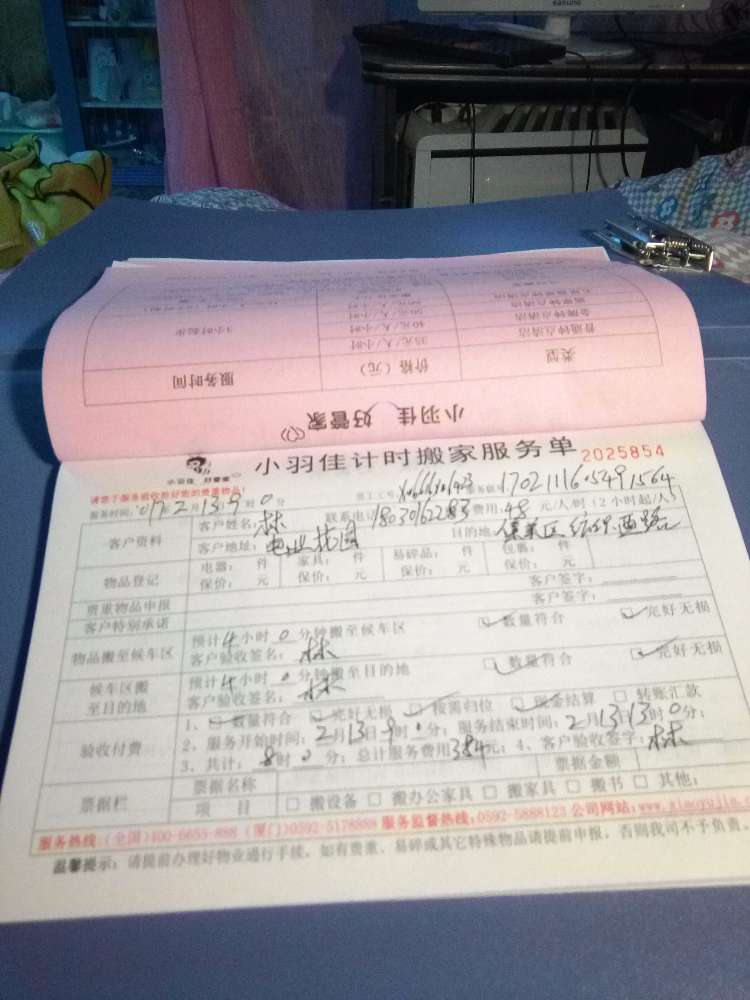 SAMSUNG
类型
价格（元）
服务时间
普通钟点清洁
35元/人/小时
金牌钟点清洁
40元/人/小时
3小时起步
50元/人/小时
小羽佳 好管家
小羽佳 好管家
小羽佳计时搬家服务单 2025854
请您于服务前收好您的贵重物品！
服务时间：017年2月13日9时0分 员工工号： 服务单号 1702111605491564
客户资料
客户姓名：林 联系电话 18030162283 费用：48元/人/时（2小时起/人）
客户地址：电业花园 目的地：
物品登记
电器： 件 家具： 件 易碎品： 件 包裹： 件
保价： 元 保价： 元 保价： 元 保价： 元
贵重物品申报 客户签字：
客户特别承诺 客户签字：
物品搬至候车区
预计4小时0分钟搬至候车区 ☑数量符合 ☑完好无损
客户验收签名：林
候车区搬至目的地
预计4小时0分钟搬至目的地 ☑数量符合 ☑完好无损
客户验收签名：林
验收付费
1、☑数量符合 ☑完好无损 ☑按需归位 ☑现金结算 □转账汇款
2、服务开始时间：2月13日9时0分；服务结束时间：2月13日13时0分；
3、共计：8时0分；总计服务费用384元；4、客户验收签字：林
票据栏
票据名称 票据金额
项目 □搬设备 □搬办公家具 □搬家具 □搬书 □其他：
服务热线：(全国)400-6655-888 (厦门)0592-5178888 服务监督热线：0592-5888123 公司网站：www.xiaoyujia.com
温馨提示：请提前办理好物业通行手续，如有贵重、易碎或其它特殊物品请提前申报，否则我司不予负责。